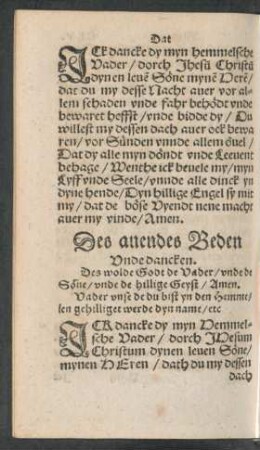 Dat
ICk dancke dy myn hemmelsche
Vader / dorch Jhesū Christū
dynen leuē Sōne mynē Herē /
dat du my desse Nacht auer vor al-
lem schaden vnde fahr behödt vnde
bewaret heffst / vnde bidde dy / Du
willest my dessen dach auer ock bewa
ren / vor Sünden vnnde allem öuel /
Dat dy alle myn döndt vnde Leeuent
behage / Wenthe ick beuele my / myn
Lyff vnde Seele / vnnde alle dinck yn
dyne hende / Dyn hillige Engel sy mit
my / dat de böse Vyendt nene macht
auer my vinde / Amen.
Des auendes Beden
Vnde dancken.
Des wolde Godt de Vader / vnde de
Sōne / vnde de hillige Geyst / Amen.
Vader vnse de du bist yn den Hemme /
len gehilliget werde dyn name / etc
ICK dancke dy myn Hemmel-
sche Vader / dorch JHesum
Christum dynen leuen Sōne /
mynen HEren / dath du my dessen
dach